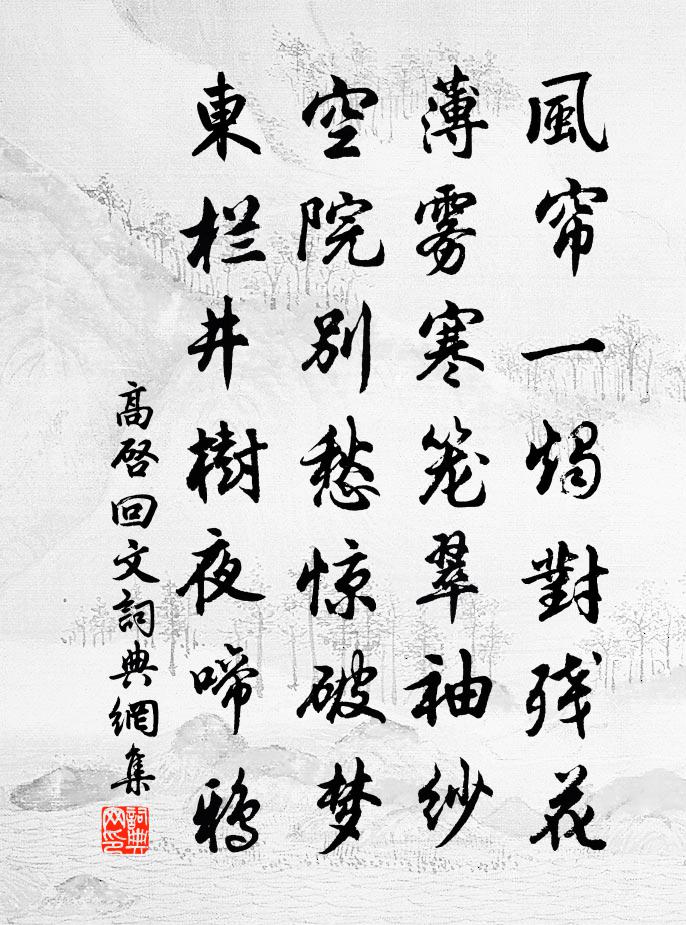 風帘一燭對残花
薄雾寒笼翠袖纱
空院别愁惊破梦
東栏井樹夜啼鴉
高啓回文詞典網集
詞典网印